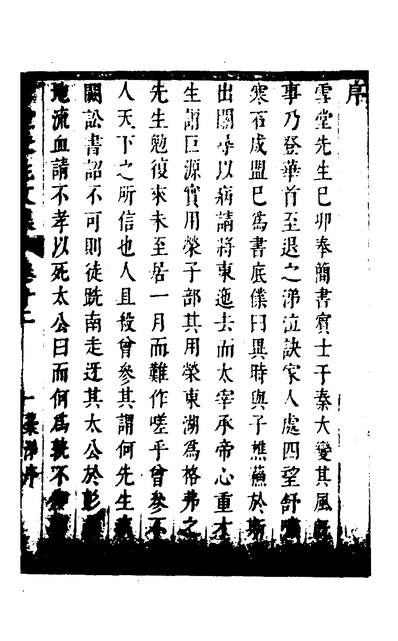 序
雪堂先生己卯奉簡書賓士于秦大變其風
事乃登華首至退之涕泣訣家人處四望舒嘯
寒石成盟已爲書底僕曰異時與子樵蘇於斯
出關尋以病請將東迤去而太宰承帝心重才
生謂巨源實用榮子部其用榮東湖爲格弗之
先生勉復來未至居一月而難作嗟乎曾參不
人天下之所信也人且役曾參其謂何先生
闕訟書詔不可則徒跣南走迓其太公於彭
地流血請不孝以死太公曰而何爲孰不
文集
卷十二
序